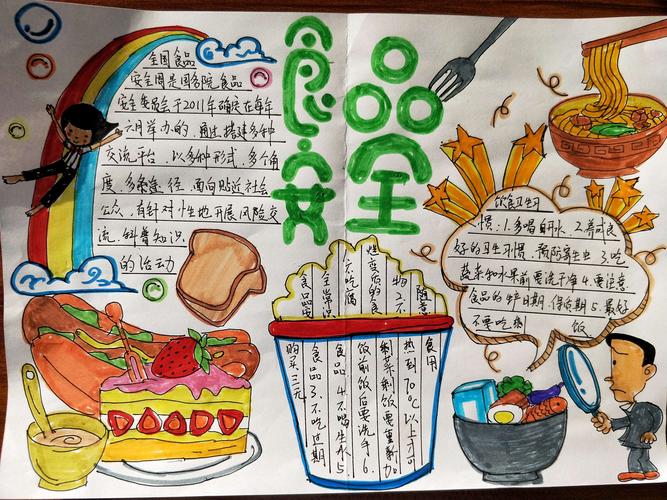 食品
安全
全国食品
安全周是国务院食品
安全委员会于2011年确定在每年
六月举办的，通过搭建多种
交流平台，以多种形式、多个角
度、多条途径，面向贴近社会
公众，有针对性地开展风险交
流、科普知识
的活动
食品安
全常识
1.不吃腐
变质的食
物2.不
随意
购买三无
食品3.不吃过期
食品4.不喝生水5.
饭前饭后要洗手6.
剩菜剩饭要重新加
热到70℃以上才可
食用
饮食卫生习
惯：1.多喝开水 2.养成良
好的卫生习惯，预防寄生虫 3.吃
蔬菜和水果前要洗干净 4.要注意
食品的生产日期、保质期 5.最好
不要吃剩 饭